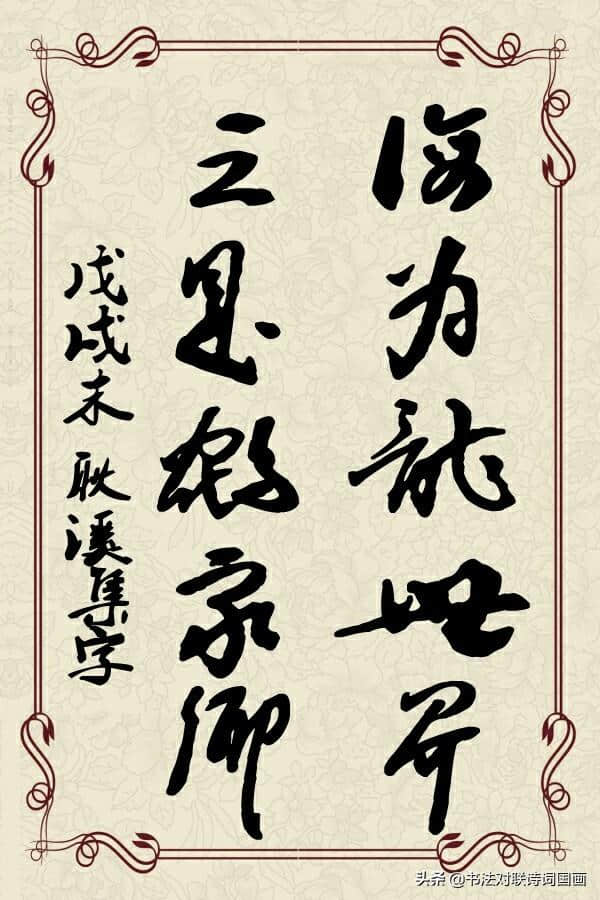 海为龍世界
云是鶴家鄉
戊戌末 耿溪集字
头条 @书法对联诗词国画